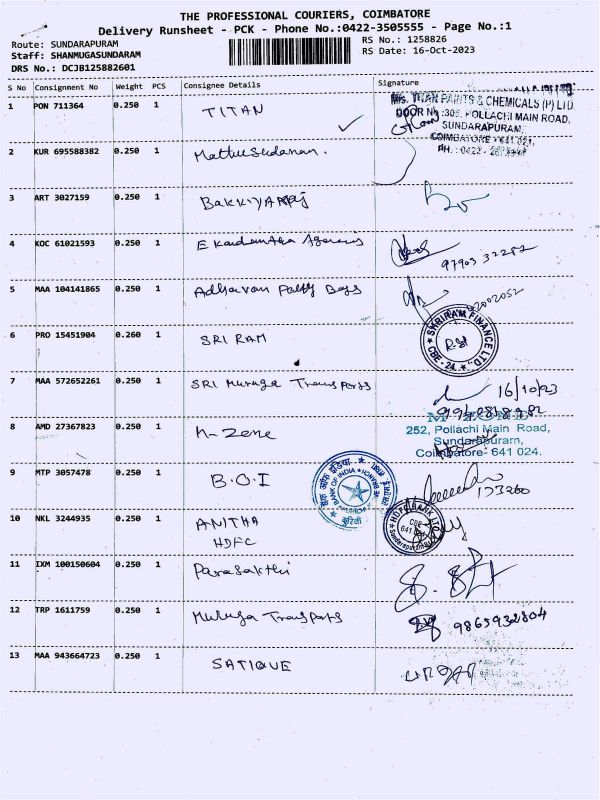 THE PROFESSIONAL COURIERS, COIMBATORE
Delivery Runsheet - PCK - Phone No.:0422-3505555 - Page No.:1
Route: SUNDARAPURAM
RS No.: 1258826
Staff: SHANMUGASUNDARAM
RS Date: 16-Oct-2023
DRS No.: DCJB125882601
S No Consignment No Weight PCS Consignee Details Signature
1 PON 711364 0.250 1 TITAN
M/s. TITAN PAINTS & CHEMICALS (P) LTD
DOOR No :305, POLLACHI MAIN ROAD,
SUNDARAPURAM,
COIMBATORE - 641 021,
PH. : 0422 -
2 KUR 695588382 0.250 1
3 ART 3027159 0.250 1 BAKKIYARAJ
4 KOC 61021593 0.250 1 E
97903 32252
5 MAA 104141865 0.250 1 Adhavan Patty Bags
6 PRO 15451904 0.260 1 SRI RAM
SHRIRAM FINANCE LTD
CBE - 24.
7 MAA 572652261 0.250 1 SRI Muruga Transports
16/10/23
8 AMD 27367823 0.250 1 M-Zone
M ZONE
252, Pollachi Main Road,
Sundarapuram,
Coimbatore- 641 024.
9 MTP 3057478 0.250 1 B.O.I
बैंक ऑफ इंडिया
BANK OF INDIA
173260
10 NKL 3244935 0.250 1 ANITHA
HDFC
HDFC BANK LTD
CBE
641
Sundarapuram
11 IXM 100150604 0.250 1 Parasakthi
12 TRP 1611759 0.250 1 Muruga Transports
9865932804
13 MAA 943664723 0.250 1 SATIQUE